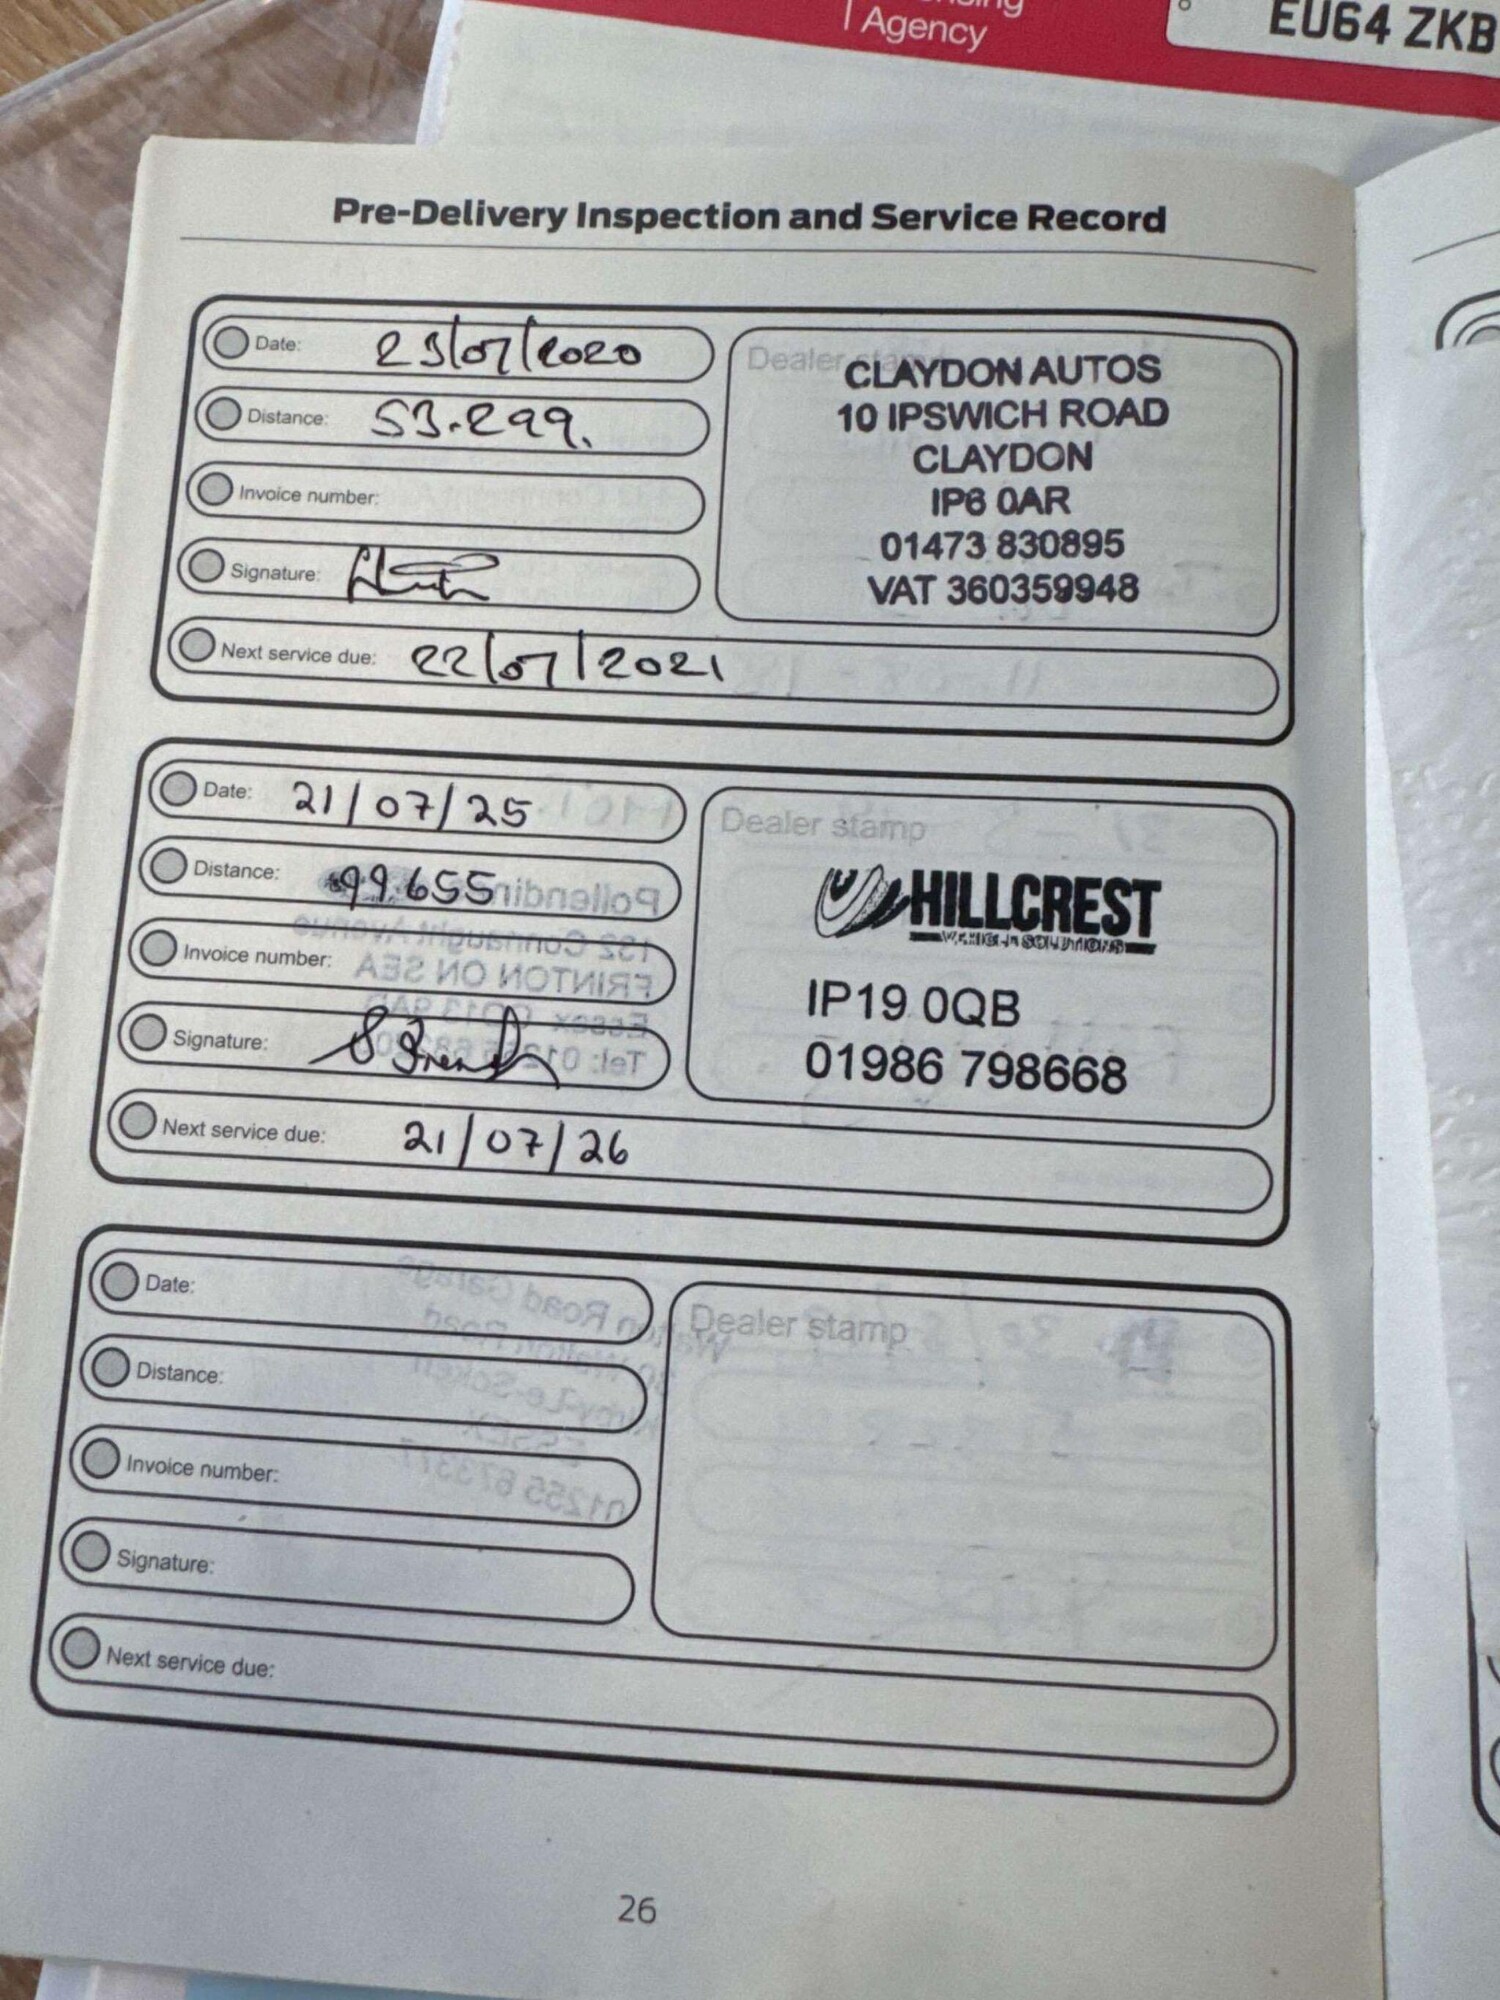 Agency
EU64 ZKB
Pre-Delivery Inspection and Service Record
Date: 23/07/2020
Distance: 53.299.
Invoice number:
Signature:
Next service due: 22/07/2021
Dealer stamp
CLAYDON AUTOS
10 IPSWICH ROAD
CLAYDON
IP6 0AR
01473 830895
VAT 360359948
Date: 21/07/25
Distance: 99.655
Invoice number:
Signature:
Next service due: 21/07/26
Dealer stamp
HILLCREST
VEHICLE SOLUTIONS
IP19 0QB
01986 798668
Date:
Distance:
Invoice number:
Signature:
Next service due:
Dealer stamp
26